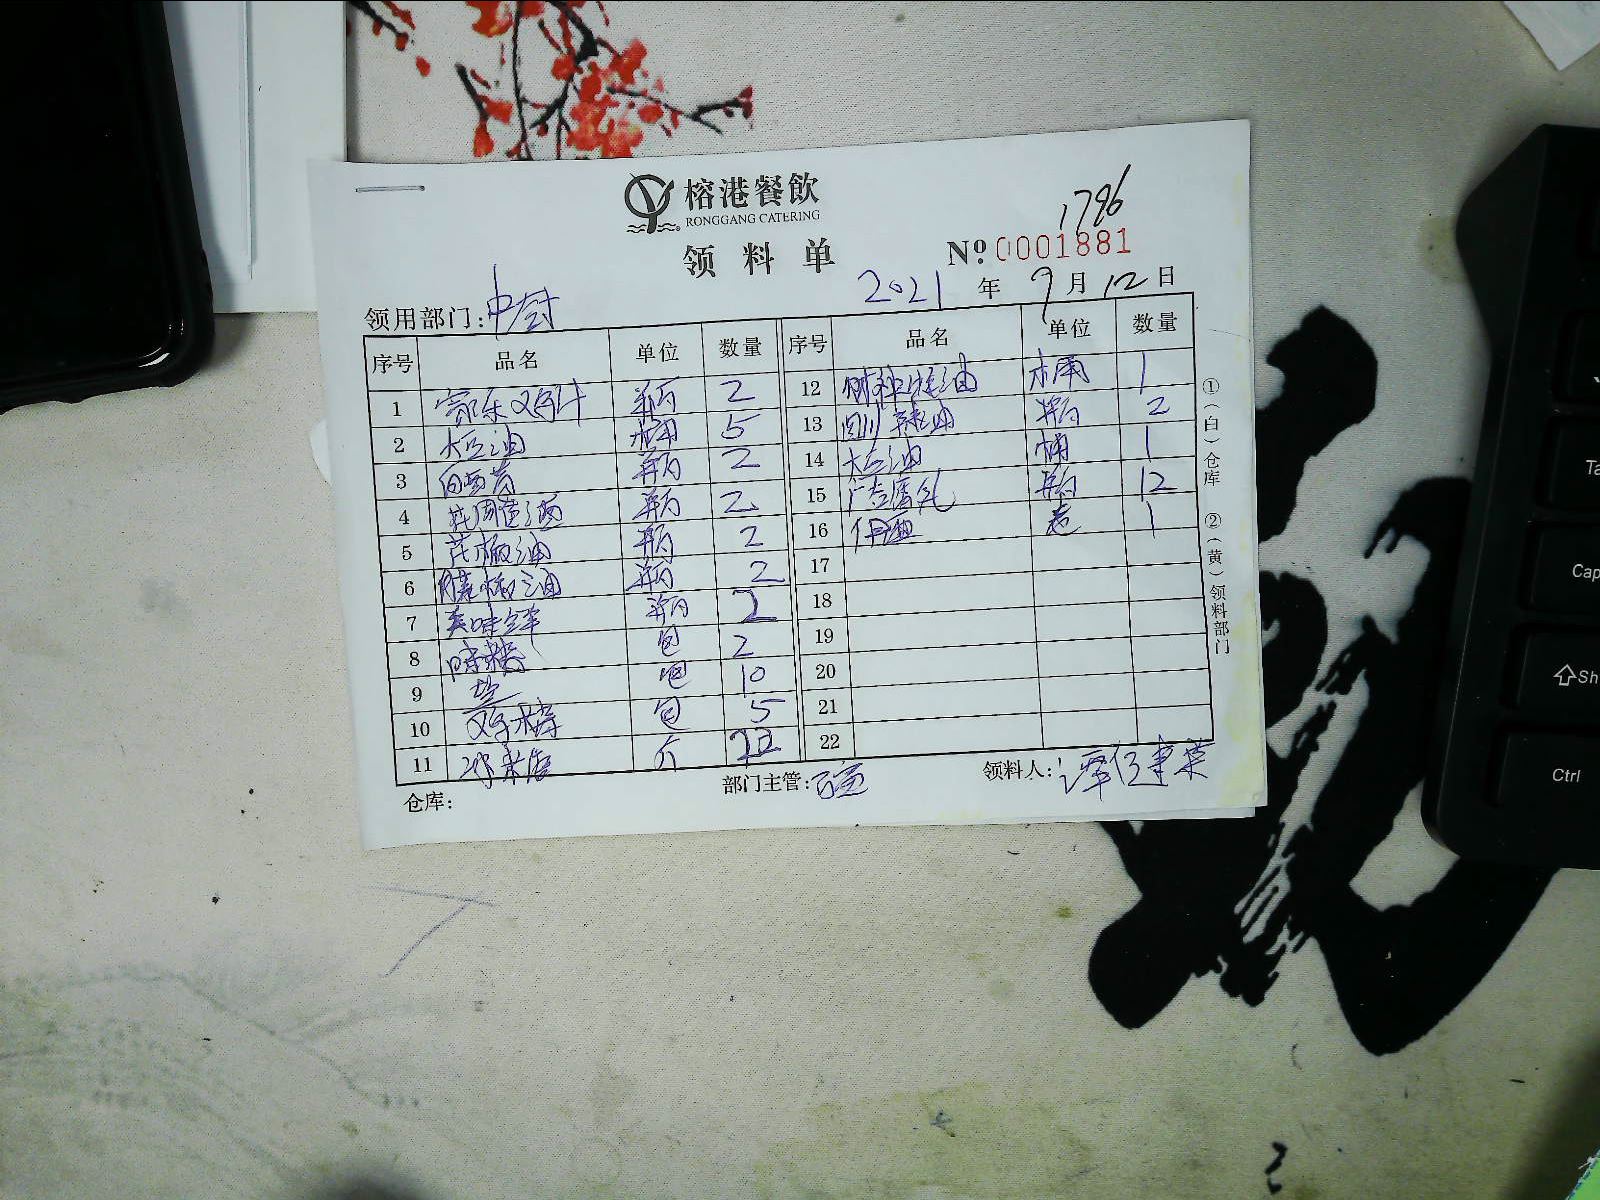 榕港餐飲
RONGGANG CATERING
1796
领料单
Nº 0001881
领用部门：中厨
2021 年 9 月 12 日
序号 品名 单位 数量
1 家乐鸡汁 瓶 2
2 大豆油 桶 5
3 瓶 2
4 瓶 2
5 花椒油 瓶 2
6 藤椒油 瓶 2
7 美味鲜 瓶 2
8 味精 包 2
9 盐 包 10
10 鸡精 包 5
11 斤
序号 品名 单位 数量
12 桶 1
13 四川辣油 瓶 2
14 大豆油 桶 1
15 广合腐乳 瓶 12
16 伊面 1
17
18
19
20
21
22
①（白）仓库 ②（黄）领料部门
仓库：
部门主管：
领料人：谭
Ta
Cap
Sh
Ctrl